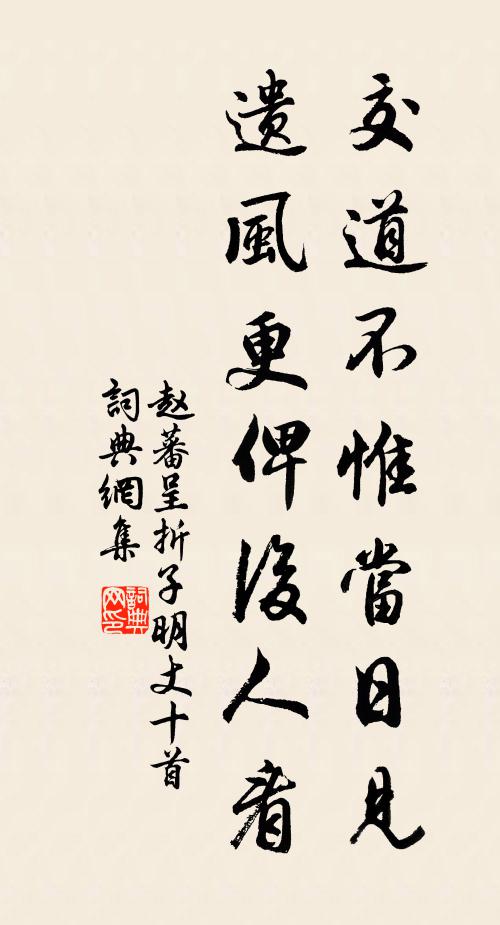 交道不惟當日見
遺風更俾後人看
赵蕃呈折子明丈十首
詞典網集
詞典网印